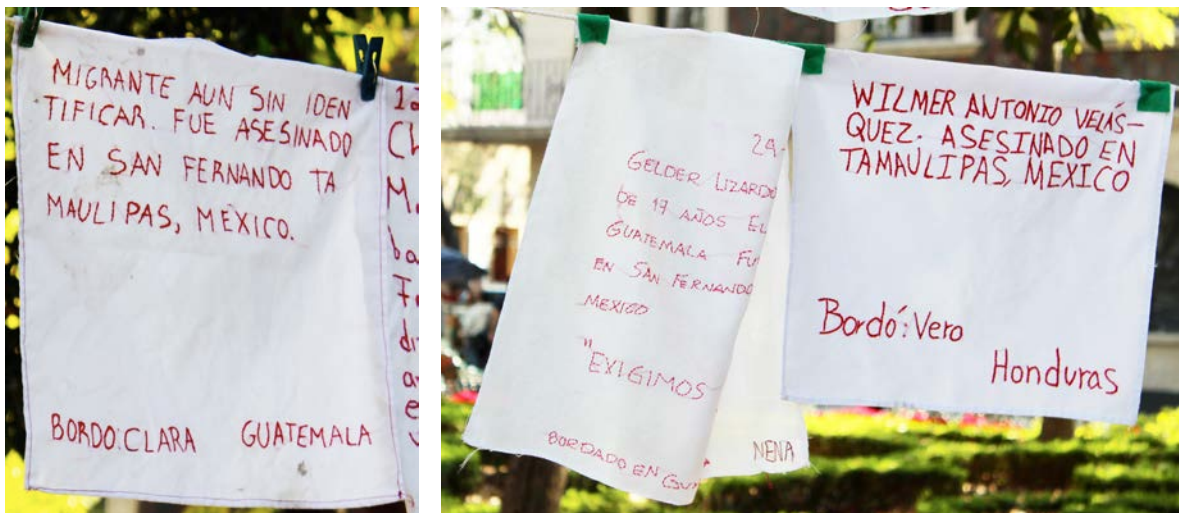 MIGRANTE AUN SIN IDEN
TIFICAR. FUE ASESINADO
EN SAN FERNANDO TA
MAULIPAS, MEXICO.
BORDO:CLARA GUATEMALA
24
GELDER LIZARDO
DE 19 AÑOS EL
GUATEMALA FU
EN SAN FERNANDO
MEXICO
"EXIGIMOS
BORDADO EN GU
NENA
WILMER ANTONIO VELÁS-
QUEZ. ASESINADO EN
TAMAULIPAS, MEXICO
Bordó: Vero
Honduras